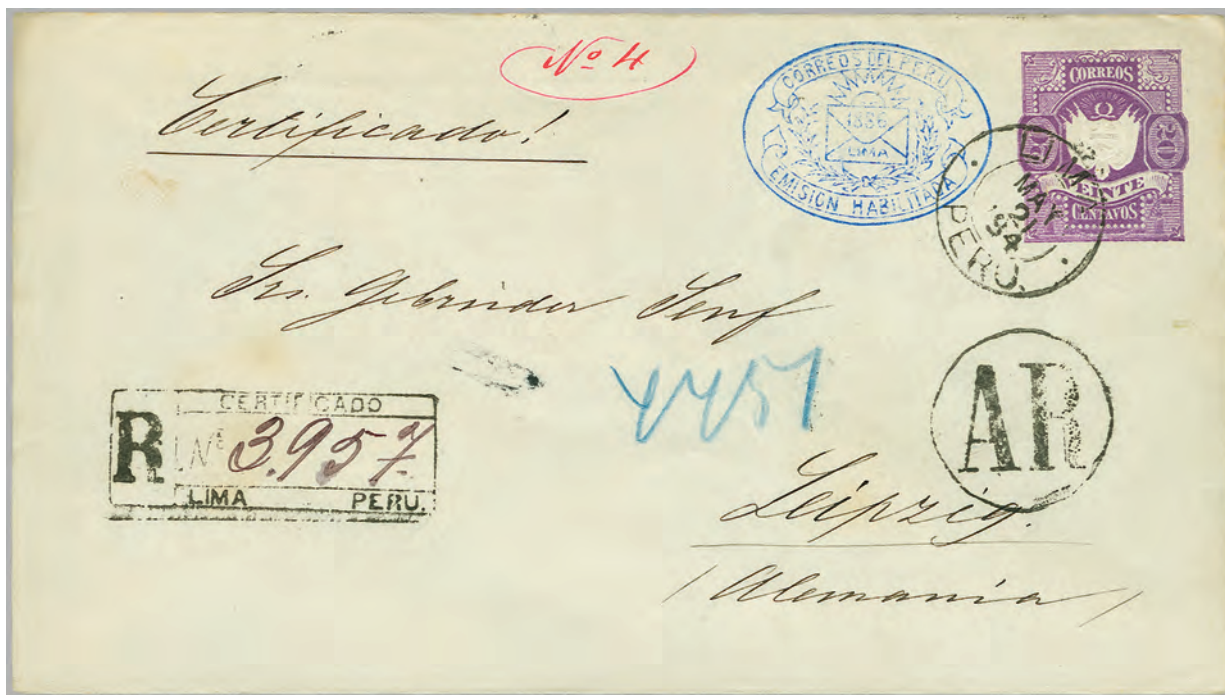 Nº 4
Certificado!
CORREOS DEL PERU
1886
LIMA
EMISION HABILITADA
CORREOS
20 20
VEINTE
CENTAVOS
LIMA
MAY
21
94
PERU.
Srs. Gebrüder Senf
4451
AR
CERTIFICADO
R Nº 3957
LIMA PERU.
Leipzig.
/ Alemania /